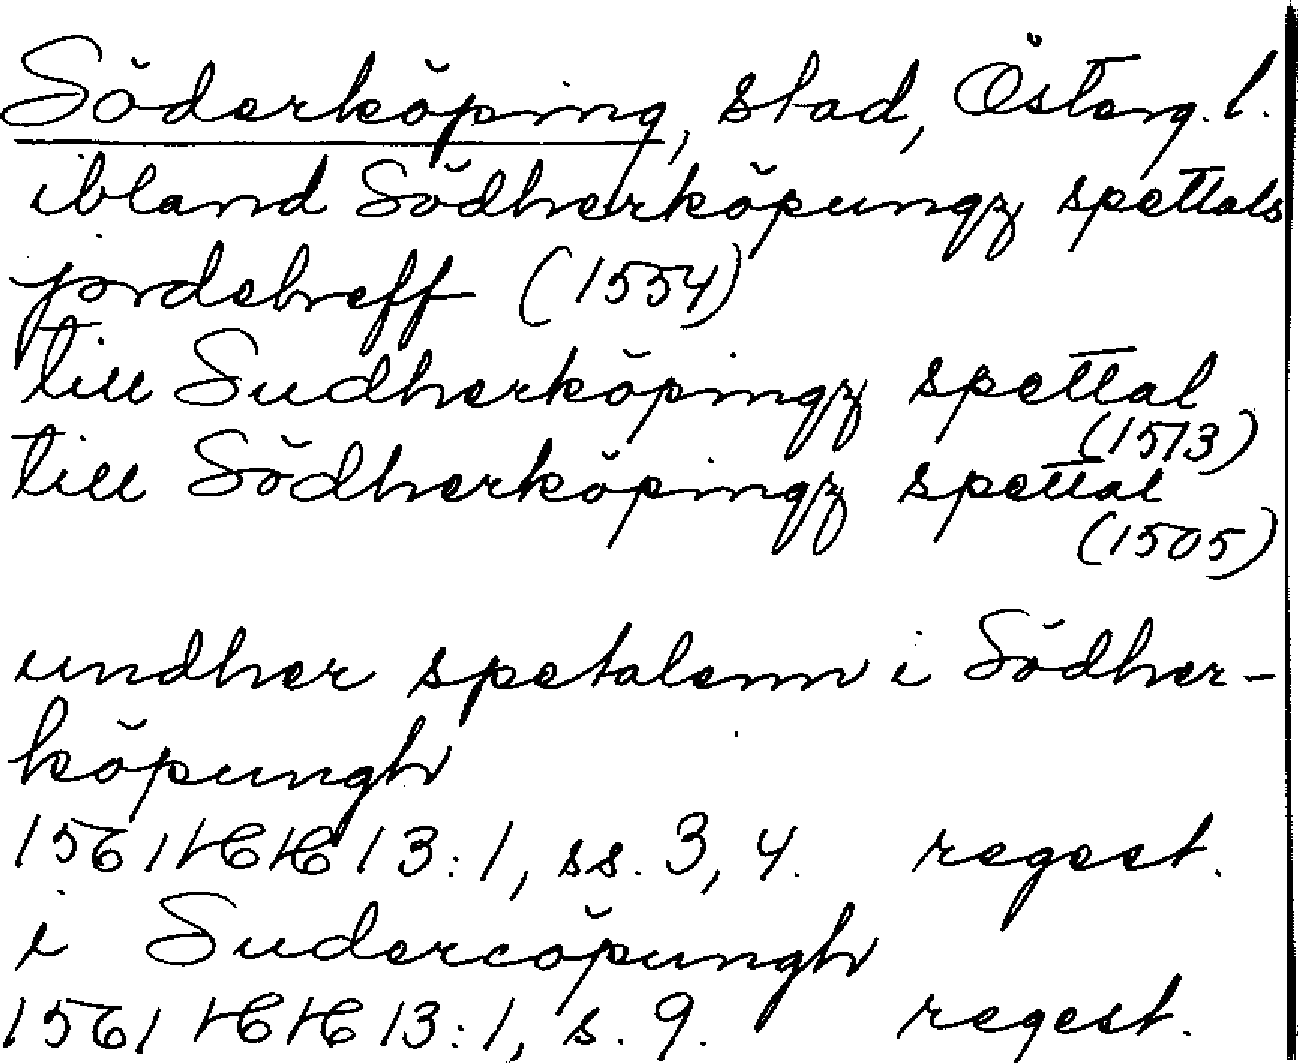 Söderköping, stad, Österg. l.
ibland Södherköpungz spettals
jordebreff (1554)
till Sudherköpingz spettal
(1513)
till Södherköpingz spettal
(1505)
undher spetalenn i Södher-
köpungh
1561 HH 13:1, ss. 3, 4. regest.
i Sudercöpungh
1561 HH 13:1, s. 9. regest.